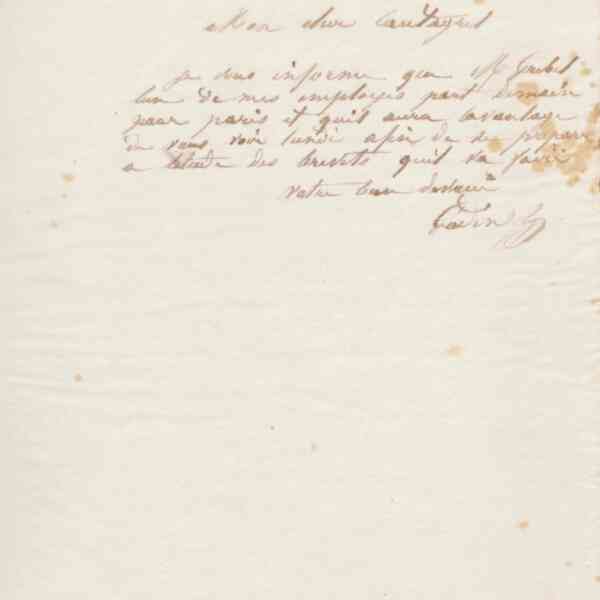 Mon cher Cantagrel
je dois informer que M
lun de mes employés part demain
pour paris et quil aura lavantage
de vous voir lundi afin de se préparer
a létude des brevets quil va faire
votre bien dévoué
Godin